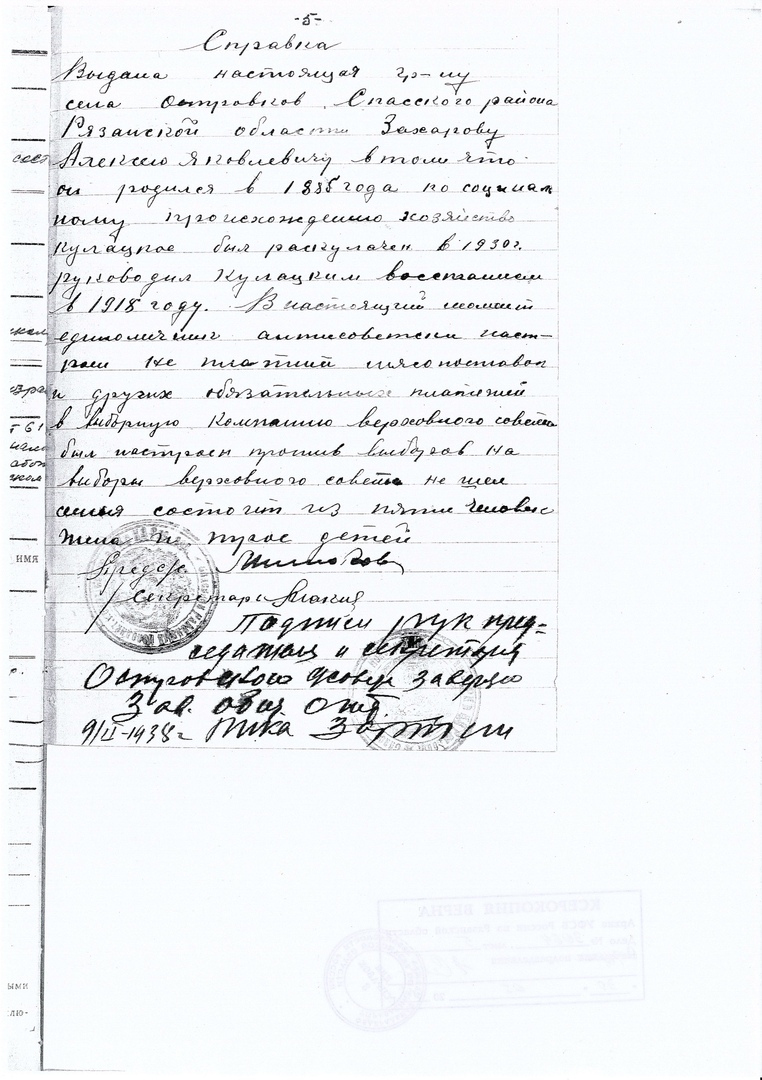 -5-
Справка
Выдана настоящая гр-ну
села Островков Спасского района
Рязанской области Захарову
Алексею Яковлевичу в том что
он родился в 1885 года по социаль
ному происхождению хозяйство
кулацкое был раскулачен в 1930 г.
руководил кулацким восстанием
в 1918 году. В настоящий момент
единоличник антисоветски наст-
роен не платил мясопоставок
и других обязательных платежей
в выборную компанию верховного совета
был настроен против выборов на
выборы верховного совета не шел
семья состоит из пяти человек
жена и трое детей
Предс.
Секретарь
Подписи рук пред-
седателя и секретаря
Островского заверяю
Зав. общ. отд.
9/II-1938 г. РИКа
ИМЯ
КСЕРОКОПИЯ ВЕРНА